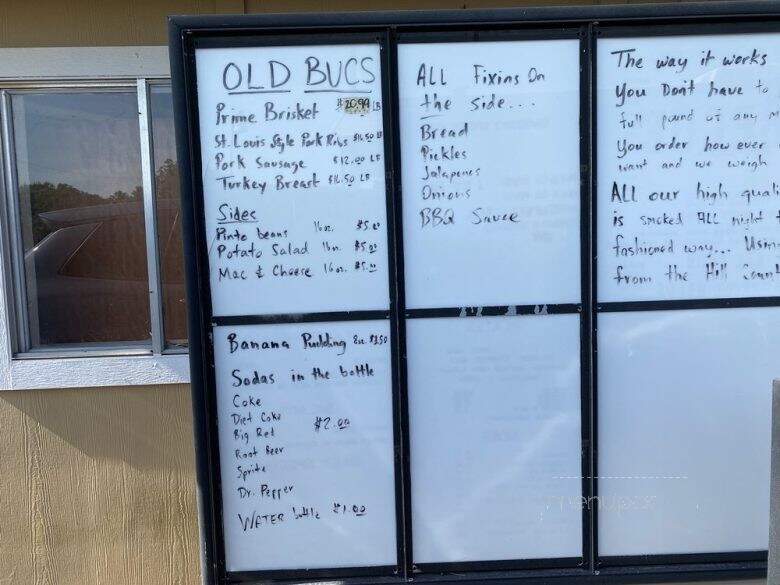 OLD BUCS
Prime Brisket $20.99 LB
St. Louis Style Pork Ribs $16.50 LB
Pork Sausage $12.00 LB
Turkey Breast $16.50 LB
Sides
Pinto beans 16oz. $5.00
Potato Salad 16oz. $5.00
Mac & Cheese 16oz. $5.00
Banana Pudding 8oz. $3.50
Sodas in the bottle
Coke
Diet Coke
Big Red $2.00
Root Beer
Sprite
Dr. Pepper
WATER bottle $1.00
ALL Fixins On
the side...
Bread
Pickles
Jalapenos
Onions
BBQ Sauce
The way it works
You Don't have to
full pound of any
You order how ever
want and we weigh
ALL our high quali
is smoked ALL night
fashioned way... Usin
from the Hill Coun
menupix